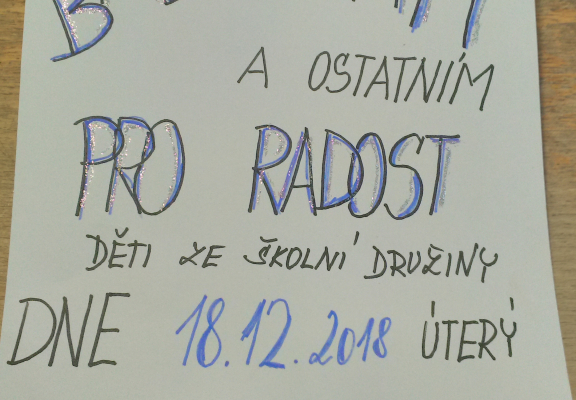 A OSTATNÍM
PRO RADOST
DĚTI ZE ŠKOLNÍ DRUŽINY
DNE 18.12.2018 ÚTERÝ